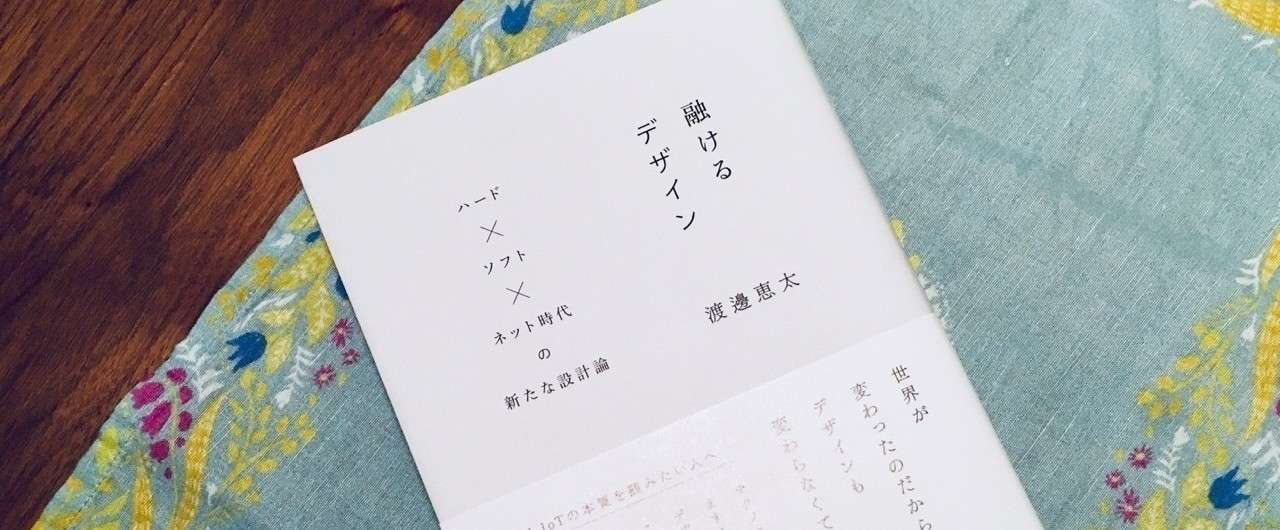 融ける
デザイン
ハード
×
ソフト
×
ネット時代
の
新たな設計論
渡邊恵太
世界が
変わったのだから
デザインも
変わらなくて
IoTの本質を掴みたい人へ